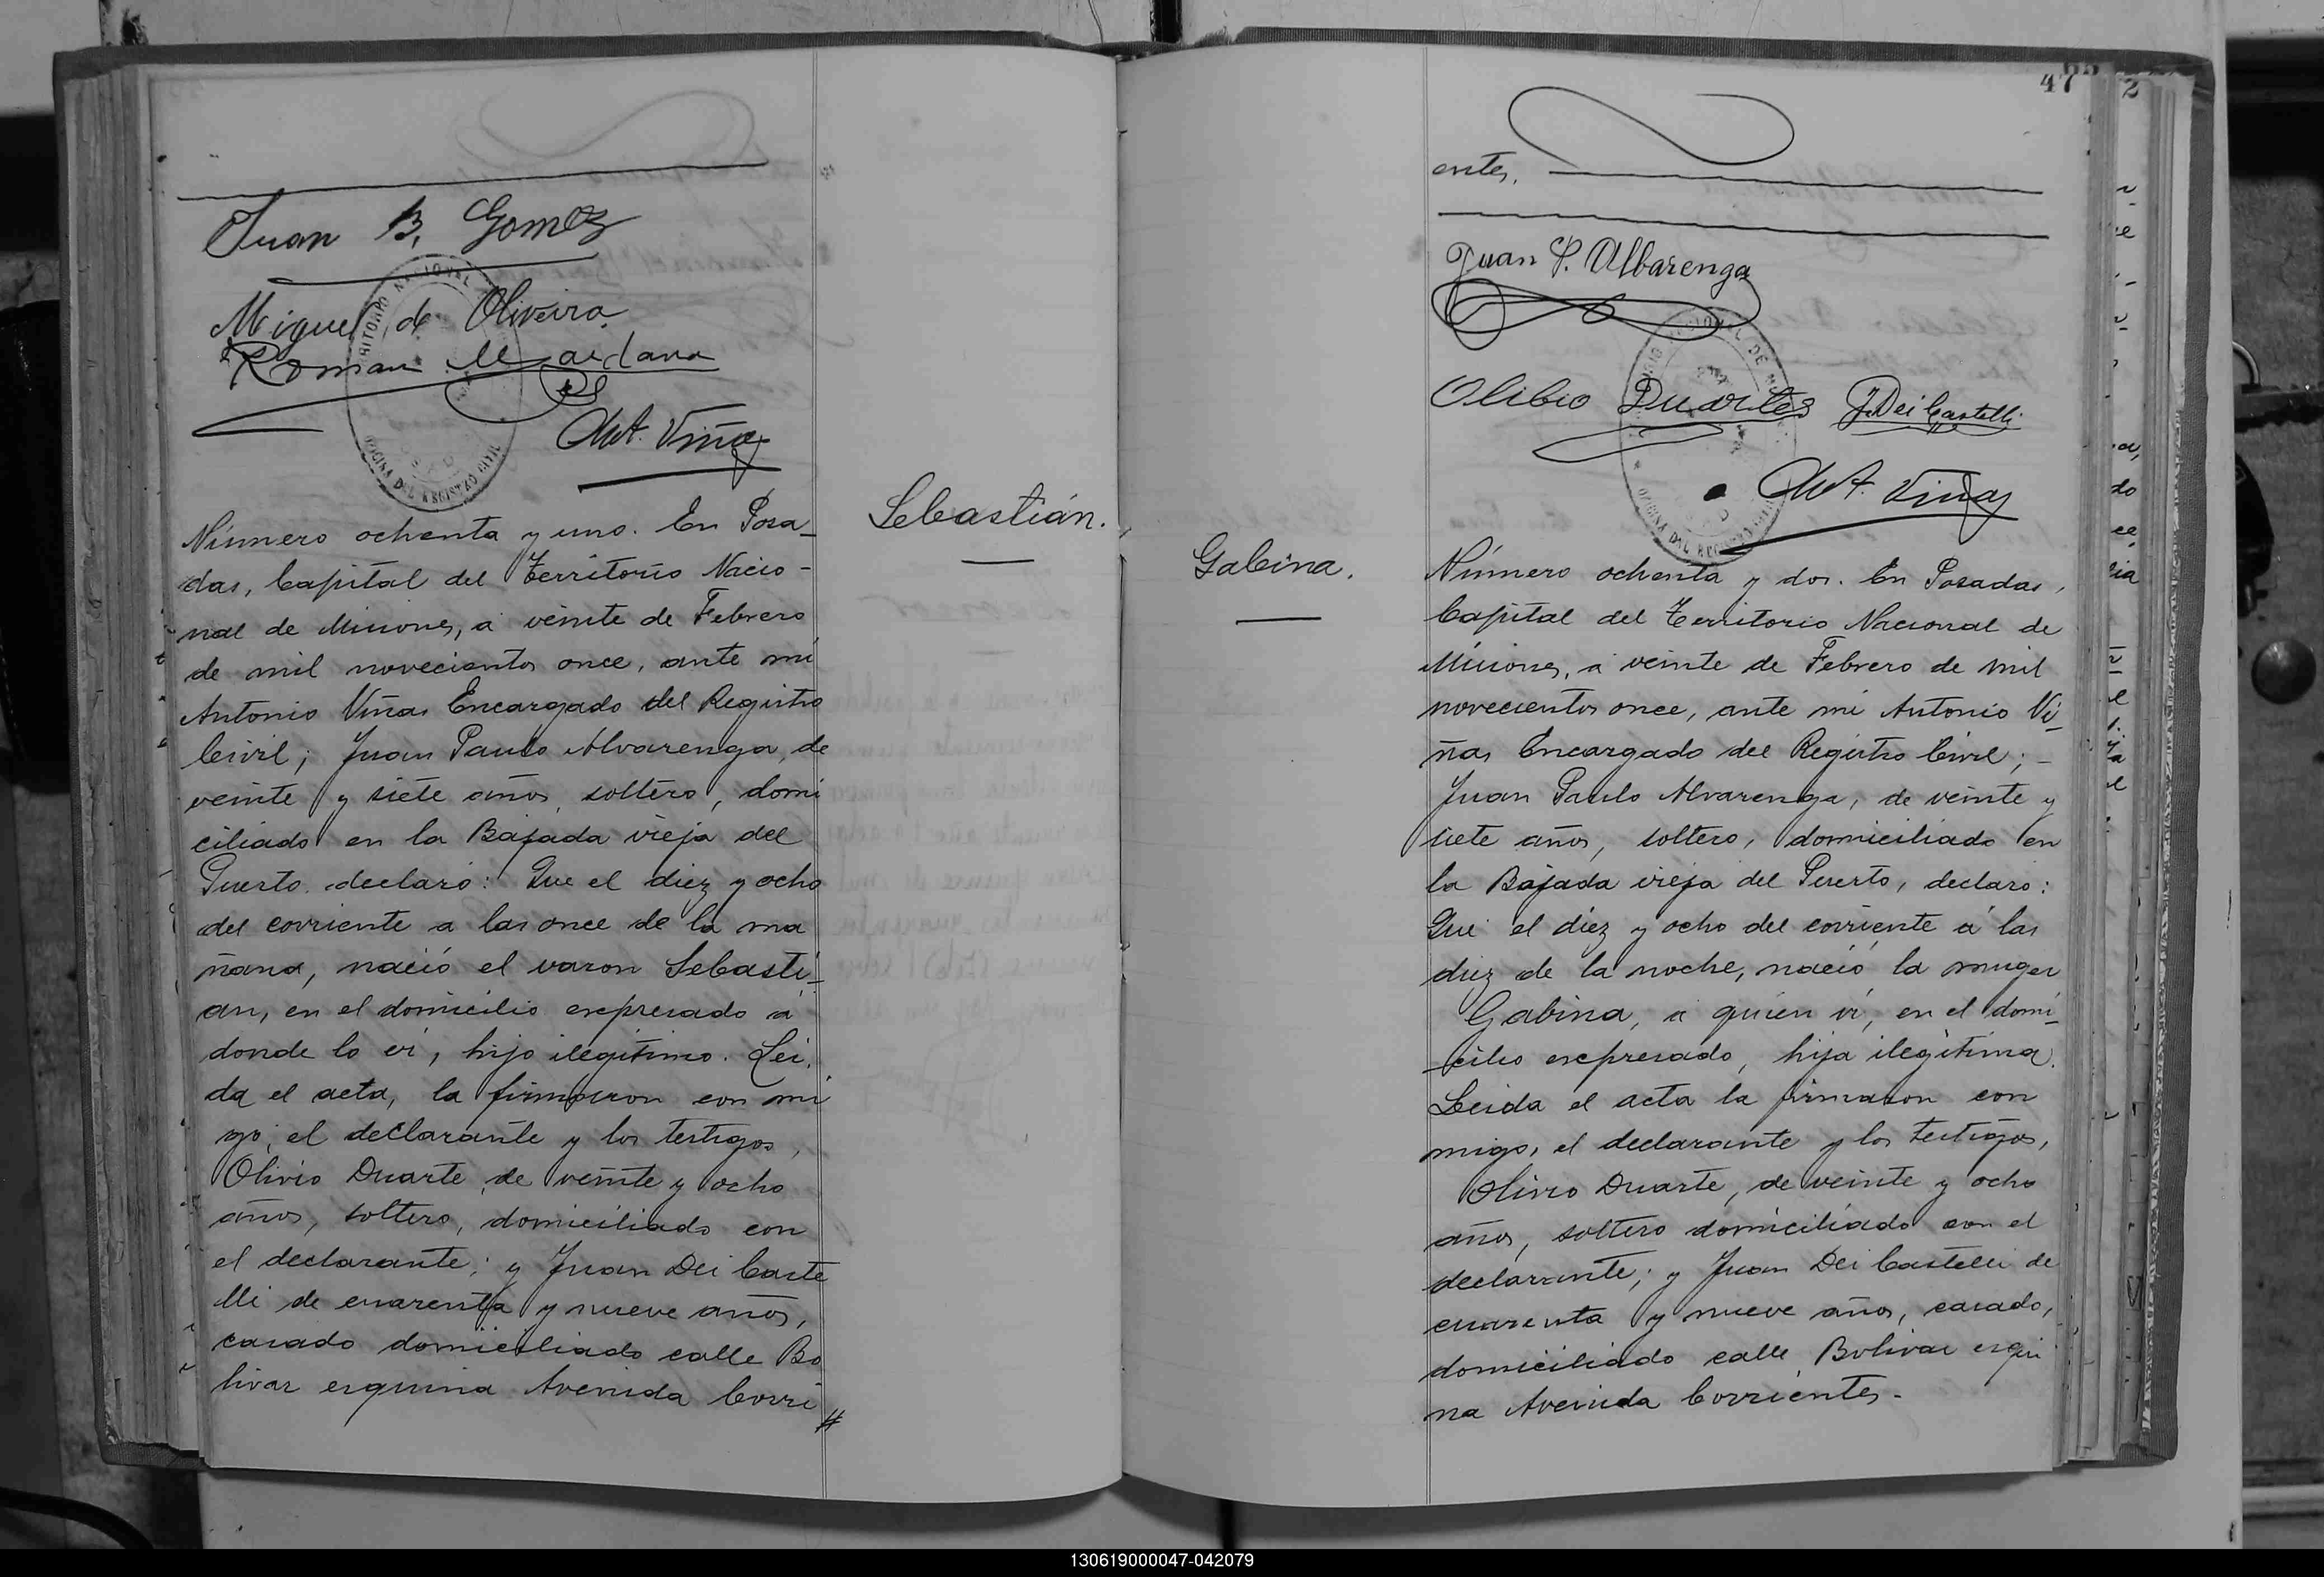 Juan B. Gomez
Miguel de Oliveira
Roman Maidana
Ant. Viñas
Sebastián.
Número ochenta y uno. En Posa_
das, Capital del Territorio Nacio-
nal de Misiones, á veinte de Febrero
de mil novecientos once, ante mi
Antonio Viñas Encargado del Registro
Civil; Juan Paulo Alvarenga, de
veinte y siete años, soltero, domi
ciliado en la Bajada vieja del
Puerto declaró: Que el diez y ocho
del corriente a las once de la ma
ñana, nació el varon Sebasti_
an, en el domicilio espresado á
donde lo ví, hijo ilegítimo. Lei.
da el acta, la firmaron con mi
go, el declarante y los testigos,
Olivio Duarte, de veinte y ocho
años, soltero, domiciliado con
el declarante; y Juan Dei Caste
lli de cuarenta y nueve años,
casado domiciliado calle Bo
livar esquina Avenida Corri
#
47
2
entes.
Juan P. Albarenga
Olibio Duartes J. Dei Castelli
Ant. Viñas
OFICINA DEL REGISTRO CIVIL
Gabina.
Número ochenta y dos. En Posadas,
Capital del Territorio Nacional de
Misiones, á veinte de Febrero de mil
novecientos once, ante mi Antonio Vi_
ñas Encargado del Registro Civil; -
Juan Paulo Alvarenga, de veinte y
siete años, soltero, domiciliado en
la Bajada vieja del Puerto, declaró:
Que el diez y ocho del corriente á las
diez de la noche, nació la muger
Gabina, á quien ví, en el domi_
cilio espresado, hija ilegítima.
Leida el acta la firmaron con
migo, el declarante y los testigos,
Olivio Duarte, de veinte y ocho
años, soltero domiciliado con el
declarante; y Juan Dei Castelli de
cuarenta y nueve años, casado,
domiciliado calle Bolivar esqui
na Avenida Corrientes.-
130619000047-042079